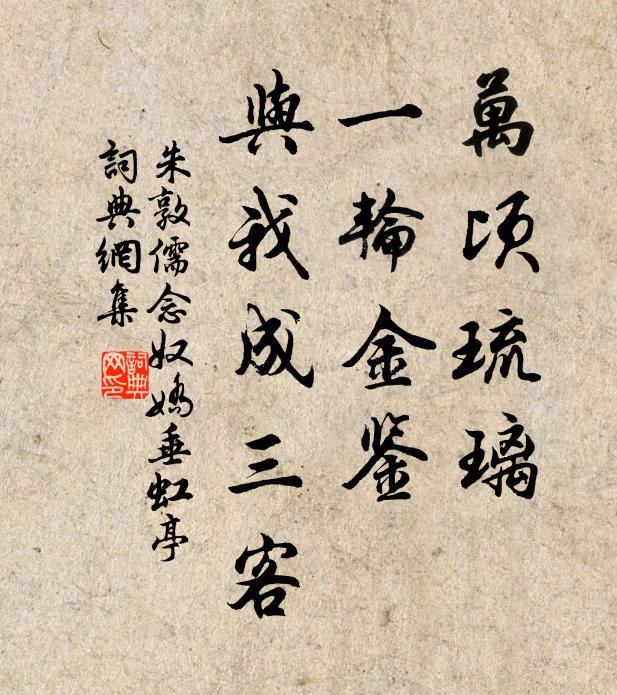 萬頃琉璃
一輪金鉴
與我成三客
朱敦儒念奴嬌垂虹亭
詞典網集
詞典
网印